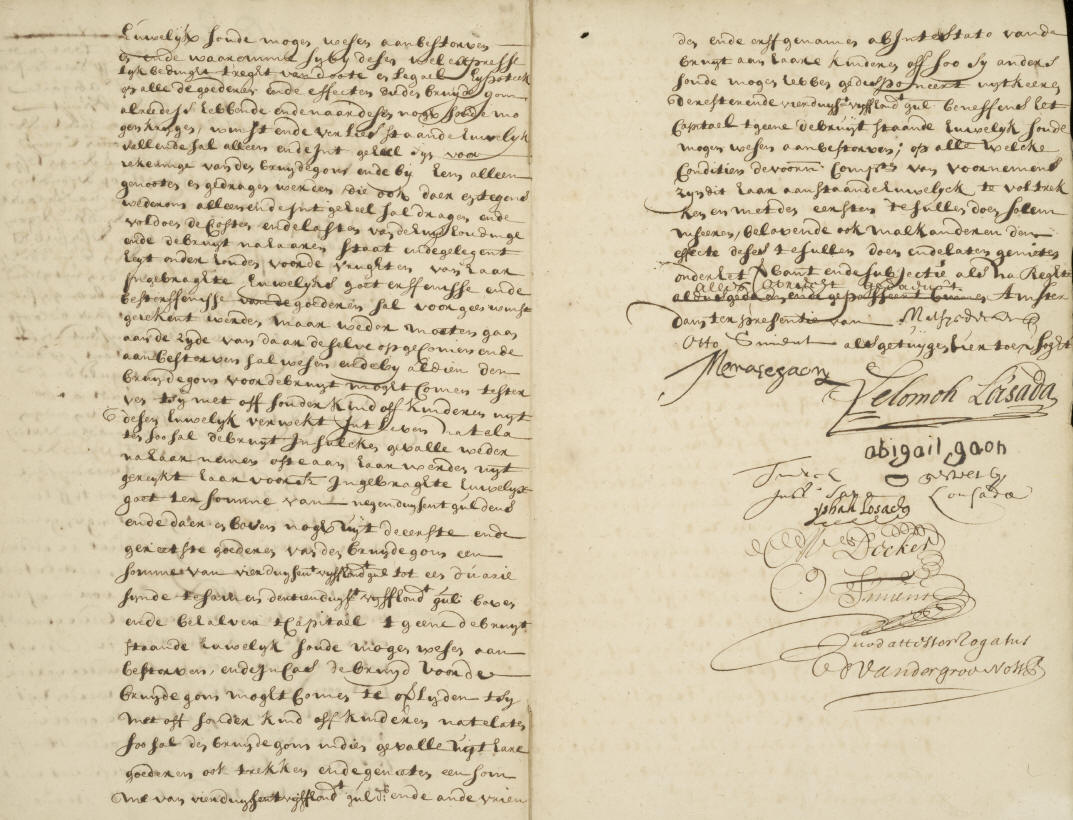 huwelijk soude mogen wesen aanbestorven
en ende waaromme sy by desen wel expresse
lijk bedingt reght van dote en legael hypoteek
op alle de goederen ende effecten vanden bruydegom
alreede hebbende ende naar desen nogh soude mo
gen krijgen, winst ende verlies staande huwelyk
vallende sal alleen ende int geheel syn voor
rekeninge van den bruydegom ende by hem alleen
genooten en gedragen werden die ook daer en tegens
wederom alleen ende int geheel sal dragen ende
voldoen de Costen ende lasten van de huyshoudinge
ende de bruyt na haaren staat ende gelegent
heyt onderhouden voor de vrughten van haar
ingebraghte huwelyks goet erffenisse ende
besterffenisse goederen sal voor geen winst
gerekent werden maar weder moeten gaan
aan de zyde van daar deselve op gecomen ende
aanbestorven sal wesen ende by aldien den
bruydegom voor de bruyt moght Comen te ster
ven tsy met off sonder kind off kinderen uyt
desen huwelyk verwekt Int Leven na te la
ten soo sal de bruyt In sulcken gevalle weder
na haar nemen ofte aan haar werden uyt
gereykt haar voorsz. Ingebraghte huwelyx
goet ter somme van negenduysent guldens
ende daer en boven nogh uyt de eerste ende
gereetste goederen van den bruydegom een
somme van vierduysent vyffhond.t gul tot een duarie
synde te samen dertienduys.t vyffhond.t gul: boven
ende behalven t Capitael t geene de bruyt
staande huwelyk soude mogen wesen aan
bestorven, ende In Cas de bruyd voor de
bruydegom moght Comen te overlyden tsy
met off sonder kind off kinderen natelaten
soo sal den bruydegom in dien gevalle uyt hare
goederen ook trekken ende genieten een som
me van vierduysent vyffhond.t guld.s ende ande vrien
den ende erffgenamen ab Intestato van de
bruyt aan haare kinderen off soo sy anders
soude mogen hebben gedisponeert uytkeeren
de resterende vierduys.t vyffhond.t gul beneffens het
Capitael t geene de bruyt staande huwelyk soude
mogen wesen aanbestorven; op alle welcke
Conditien de voorn: Comp.ten van voornemens
zyn dit haar aanstaande huwelyck te voltrek
ken en met den eersten te sullen doen solem
niseeren, belovende ook malkanderen den
effecte deses te sullen doen ende laten genieten
onder het verbant ende subjectie als na Reghte
alles opreght gedaen
aldus gedaen ende gepasseert binnen Amster
dam ter presentie van
Otto Simient als getuygen hier toe versoght
Menase gaon
Selomoh Lósada
abigail gaon
Ishak Losada
Lousada
Decker
O: Simient
Quod attestor rogatus
Vandergroe Not.s